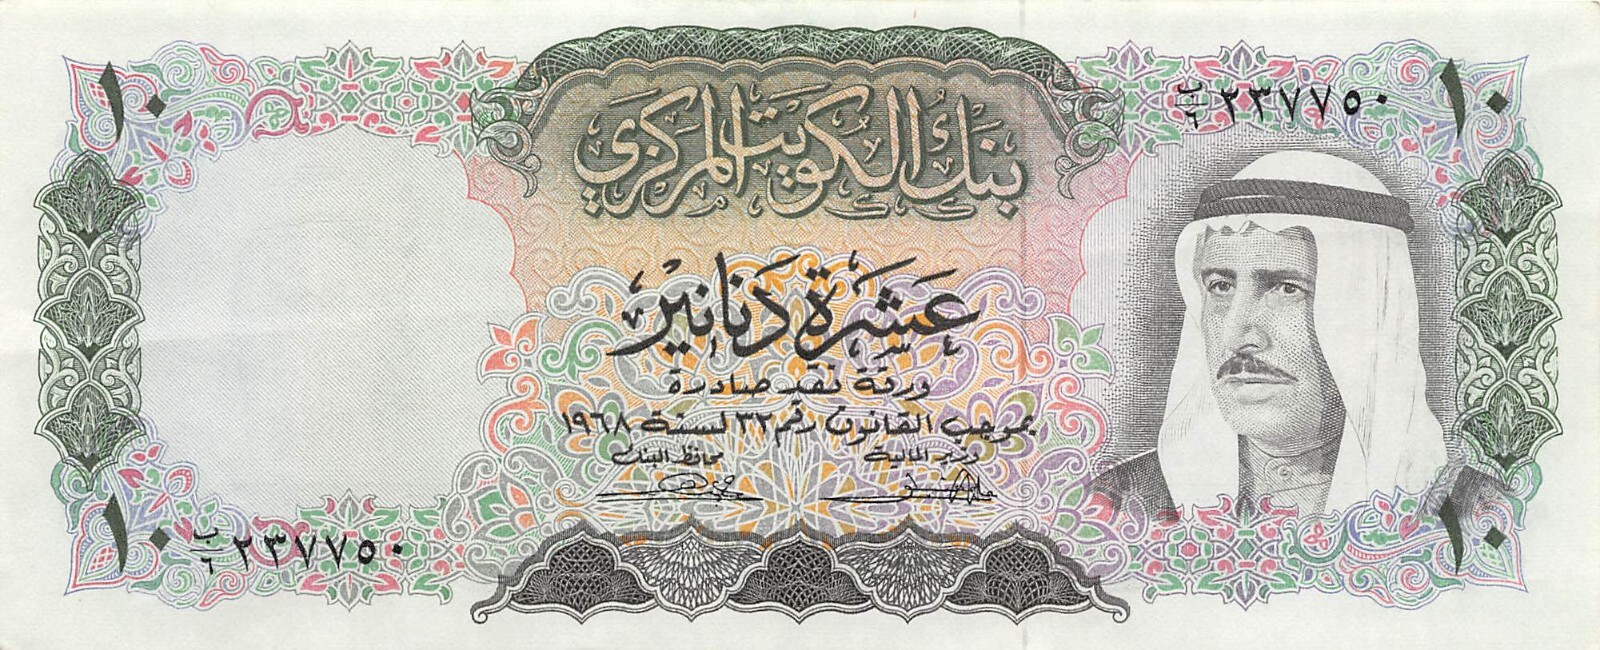 ١٠
ب/٦ ٢٣٧٧٥٠
١٠
بنك الكويت المركزي
عشرة دنانير
ورقة نقد صادرة
بموجب القانون رقم ٣٢ لسنة ١٩٦٨
وزير المالية
محافظ البنك
١٠
ب/٦ ٢٣٧٧٥٠
١٠